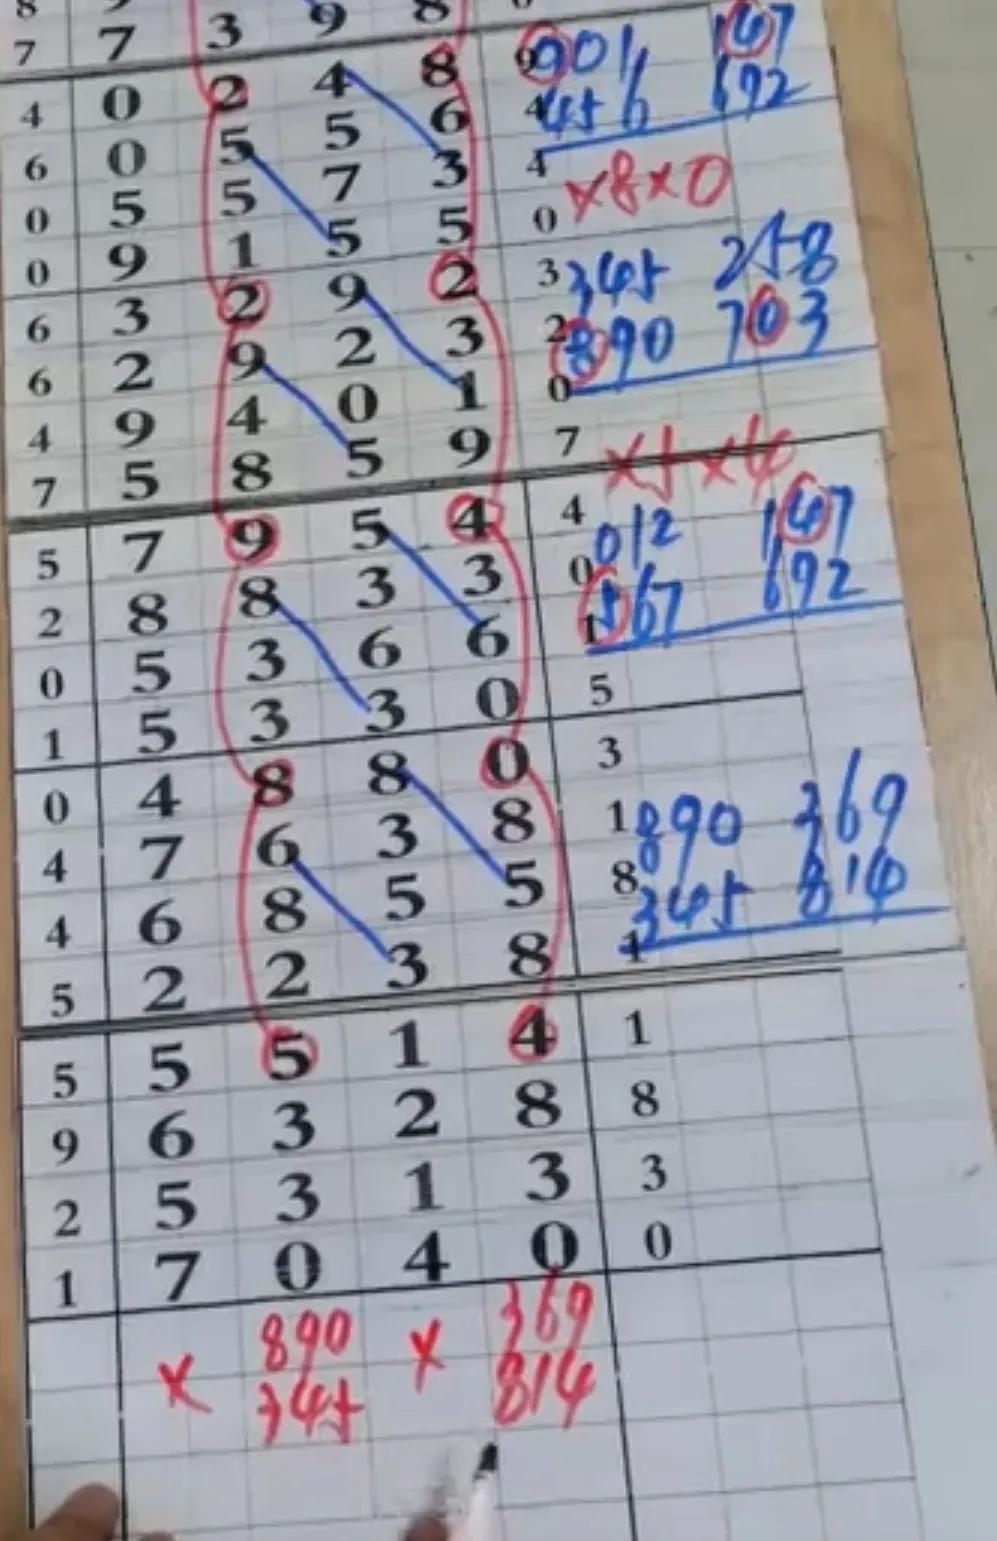 7 7 3 9 8
4 0 2 4 8 9 901 147
6 0 5 5 6 4 456 692
0 5 5 7 3 4 ×8×0
0 9 1 5 5 0
6 3 2 9 2 3 345 258
6 2 9 2 3 2 890 703
4 9 4 0 1 0
7 5 8 5 9 7 ×5×4
5 7 9 5 4 4 012 147
2 8 8 3 3 0 567 692
0 5 3 6 6 1
1 5 3 3 0 5
0 4 8 8 0 3
4 7 6 3 8 1 890 369
4 6 8 5 5 8 345 814
5 2 2 3 8 4
5 5 5 1 4 1
9 6 3 2 8 8
2 5 3 1 3 3
1 7 0 4 0 0
× 890 × 369
345 814